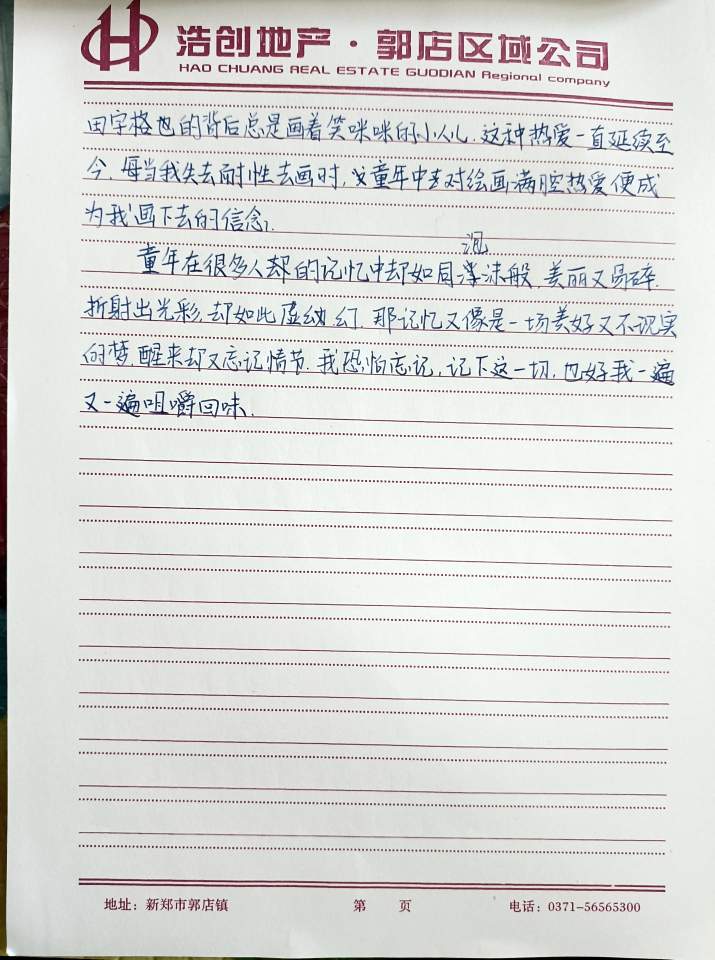 浩创地产·郭店区域公司
HAO CHUANG REAL ESTATE GUODIAN Regional company
田字格也的背后总是画着笑咪咪的小人儿.这种热爱一直延续至
今,每当我失去耐性去画时,童年中对绘画满腔热爱便成
为我画下去的信念,
泡
童年在很多人却的记忆中却如同沫般,美丽又易碎.
折射出光彩,却如此虚幻.那记忆又像是一场美好又不现实
的梦,醒来却又忘记情节.我恐怕忘记,记下这一切,也好我一遍
又一遍咀嚼回味.
地址：新郑市郭店镇 第 页 电话：0371-56565300